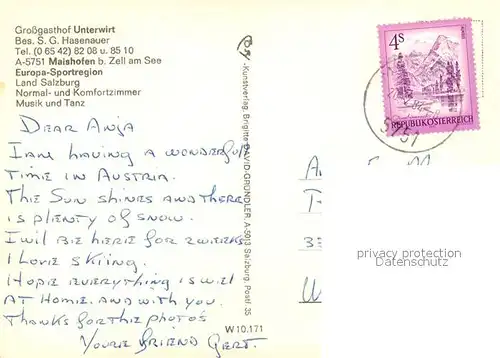 Großgasthof Unterwirt
Bes. S. G. Hasenauer
Tel. (0 65 42) 82 08 u. 85 10
A-5751 Maishofen b. Zell am See
Europa-Sportregion
Land Salzburg
Normal- und Komfortzimmer
Musik und Tanz
Dear Anja
I am having a wonderfull
time in Austria.
The sun shines and there
is plenty of snow.
I wil be here for 2 weeks
I love skiing.
Hope everything is well
at home. and with you.
Thanks for the photo's
Youre friend Gert.
W 10.171
-Kunstverlag, Brigitte DAVID-GRÜNDLER, A-5013 Salzburg, Postf. 35
4S
REPUBLIK ÖSTERREICH
5751
privacy protection
Datenschutz